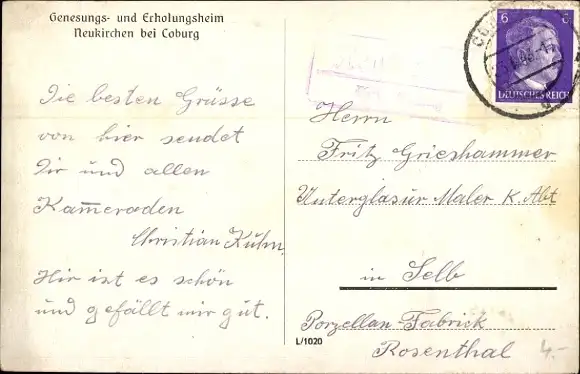 Genesungs- und Erholungsheim
Neukirchen bei Coburg
Die besten Grüsse
von hier sendet
Dir und allen
Kam̅eraden
Christian Kühn.
Hir ist es schön
und gefällt mir gut.
6
DEUTSCHES REICH
Herrn
Fritz Grieshammer
Unterglasur Maler K. Abt
in Selb
Porzellan-Fabrick
Rosenthal
L/1020
4.-